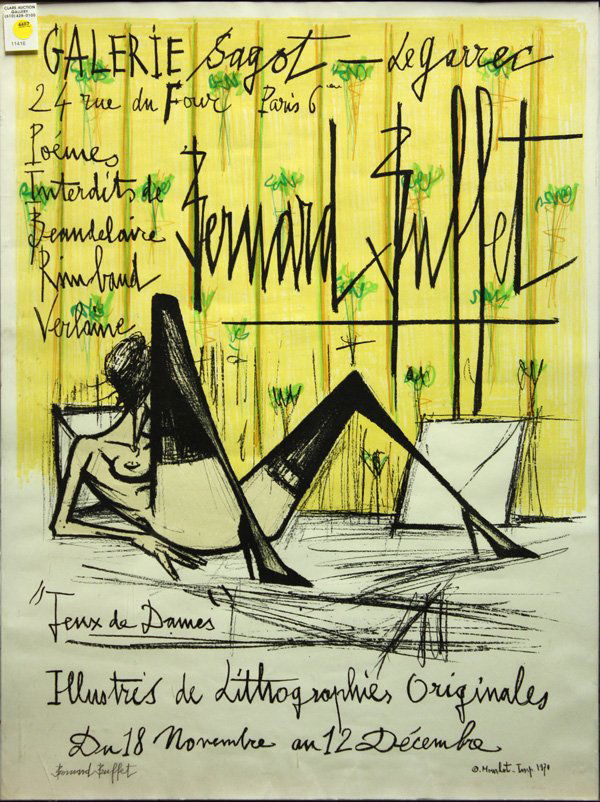 CLARS AUCTION
GALLERY
(510)428-0100
4487
11418
GALERIE Sagot - Le Garrec
24 rue du Four Paris 6ème
Poémes
Interdits de
Beaudelaire
Rimbaud
Verlaine
Bernard Buffet
"Jeux de Dames"
Illustrés de Lithographies Originales
Du 18 Novembre au 12 Décembre
Bernard Buffet
© Mourlot - Imp. 1970